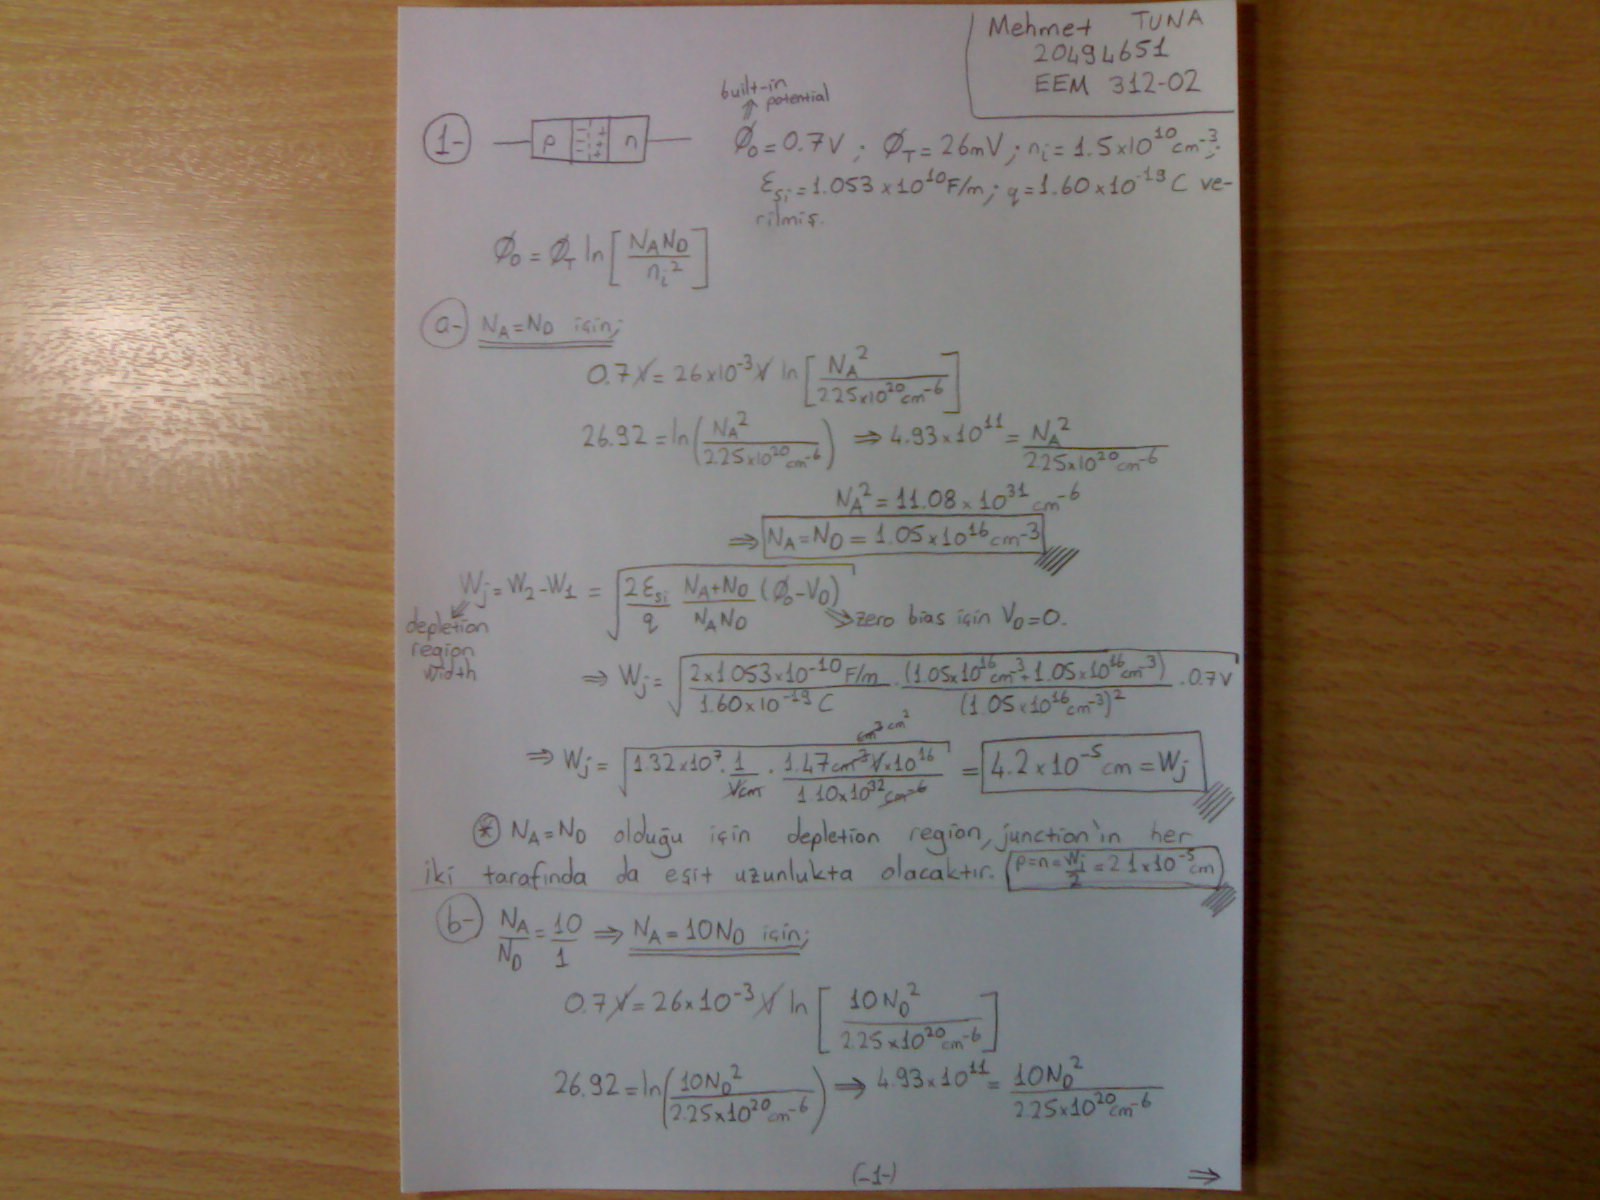 Mehmet TUNA
20494651
EEM 312-02
built-in
potential
1- p n Ø₀ = 0.7V ; Ø_T = 26mV ; n_i = 1.5x10^10 cm^-3 ;
ε_si = 1.053 x 10^10 F/m ; q = 1.60x10^-19 C ve-
rilmiş.
Ø₀ = Ø_T ln [N_A N_D / n_i^2]
a- N_A = N_D için;
0.7V = 26x10^-3 V ln [N_A^2 / 2.25x10^20 cm^-6]
26.92 = ln (N_A^2 / 2.25x10^20 cm^-6) ⇒ 4.93x10^11 = N_A^2 / 2.25x10^20 cm^-6
N_A^2 = 11.08 x 10^31 cm^-6
⇒ N_A = N_D = 1.05x10^16 cm^-3
W_j = W_2 - W_1 = √(2ε_si / q · N_A+N_D / N_A N_D (Ø₀ - V_0))
zero bias için V_0 = 0.
depletion
region
width
⇒ W_j = √(2x1.053x10^-10 F/m / 1.60x10^-19 C · (1.05x10^16 cm^-3 + 1.05x10^16 cm^-3) / (1.05x10^16 cm^-3)^2 · 0.7V
cm^3 cm^2
⇒ W_j = √(1.32x10^7 · 1 / Vcm · 1.47cm^-3 V x10^16 / 1.10x10^32 cm^-6) = 4.2x10^-5 cm = W_j
* N_A = N_D olduğu için depletion region, junction'ın her
iki tarafında da eşit uzunlukta olacaktır. p=n= W_j / 2 = 2.1x10^-5 cm
b- N_A / N_D = 10 / 1 ⇒ N_A = 10N_D için;
0.7V = 26x10^-3 V ln [10N_D^2 / 2.25x10^20 cm^-6]
26.92 = ln (10N_D^2 / 2.25x10^20 cm^-6) ⇒ 4.93x10^11 = 10N_D^2 / 2.25x10^20 cm^-6
(-1-) ⇒